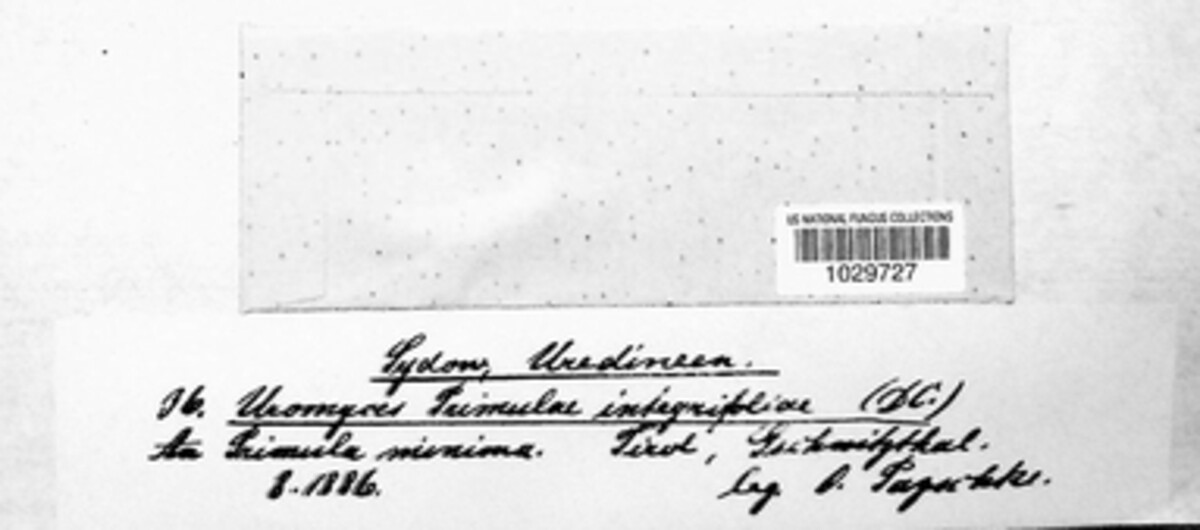 US NATIONAL FUNGUS COLLECTIONS
1029727
Sydow, Uredineen.
36. Uromyces Primulae integrifoliae (DC.)
An Primula minima. Tirol, Gschnitzthal.
8. 1886. leg. O.